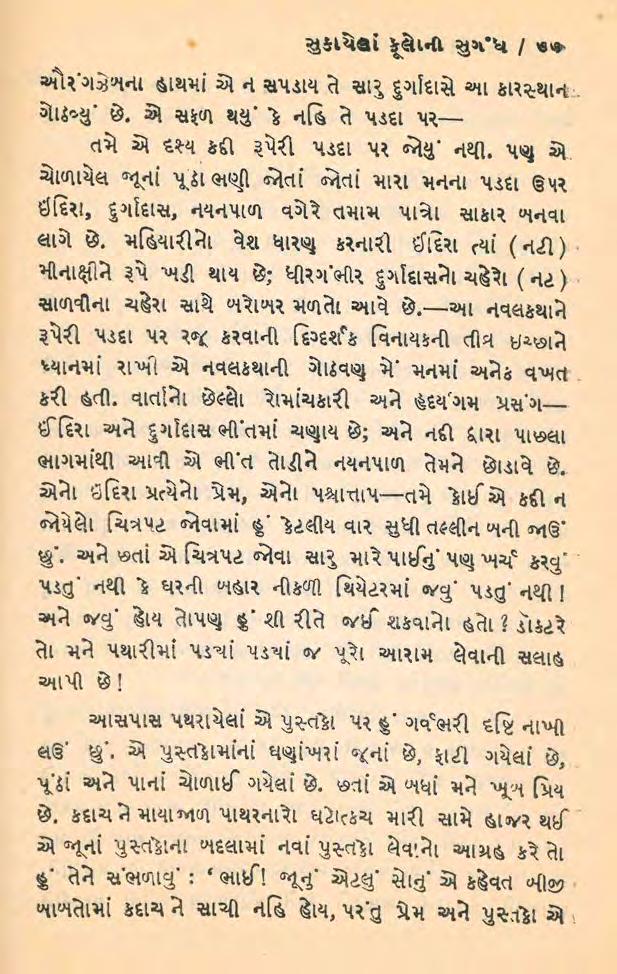 સુકાયેલાં ફૂલોની સુગંધ / ૭૭
ઔરંગઝેબના હાથમાં એ ન સપડાય તે સારુ દુર્ગાદાસે આ કારસ્થાન
ગોઠવ્યું છે. એ સફળ થયું કે નહિ તે પડદા પર—
તમે એ દૃશ્ય કદી રૂપેરી પડદા પર જોયું નથી. પણ એ
ચોળાયેલ જૂનાં પૂઠાં ભણી જોતાં જોતાં મારા મનના પડદા ઉપર
ઇંદિરા, દુર્ગાદાસ, નયનપાળ વગેરે તમામ પાત્રો સાકાર બનવા
લાગે છે. મહિયારીનો વેશ ધારણ કરનારી ઈંદિરા ત્યાં (નટી)
મીનાક્ષીને રૂપે ખડી થાય છે; ધીરગંભીર દુર્ગાદાસનો ચહેરો (નટ)
સાળવીના ચહેરા સાથે બરોબર મળતો આવે છે.—આ નવલકથાને
રૂપેરી પડદા પર રજૂ કરવાની દિગ્દર્શક વિનાયકની તીવ્ર ઇચ્છાને
ધ્યાનમાં રાખી એ નવલકથાની ગોઠવણ મેં મનમાં અનેક વખત
કરી હતી. વાર્તાનો છેલ્લો રોમાંચકારી અને હૃદયંગમ પ્રસંગ—
ઈંદિરા અને દુર્ગાદાસ ભીંતમાં ચણાય છે; અને નદી દ્વારા પાછલા
ભાગમાંથી આવી એ ભીંત તોડીને નયનપાળ તેમને છોડાવે છે.
એનો ઇંદિરા પ્રત્યેનો પ્રેમ, એનો પશ્ચાત્તાપ—તમે કોઈ એ કદી ન
જોયેલો ચિત્રપટ જોવામાં હું કેટલીય વાર સુધી તલ્લીન બની જાઉં
છું. અને છતાં એ ચિત્રપટ જોવા સારુ મારે પાઈનું પણ ખર્ચ કરવું
પડતું નથી કે ઘરની બહાર નીકળી થિયેટરમાં જવું પડતું નથી!
અને જવું હોય તોપણ હું શી રીતે જઈ શકવાનો હતો? ડૉક્ટરે
તો મને પથારીમાં પડ્યાં પડ્યાં જ પૂરો આરામ લેવાની સલાહ
આપી છે!
આસપાસ પથરાયેલાં એ પુસ્તકો પર હું ગર્વભરી દૃષ્ટિ નાખી
લઉં છું. એ પુસ્તકોમાંનાં ઘણાંખરાં જૂનાં છે, ફાટી ગયેલાં છે,
પૂંઠાં અને પાનાં ચોળાઈ ગયેલાં છે. છતાં એ બધાં મને ખૂબ પ્રિય
છે. કદાચ ને માયાજાળ પાથરનારો ઘટોત્કચ મારી સામે હાજર થઈ
એ જૂનાં પુસ્તકોના બદલામાં નવાં પુસ્તકો લેવાનો આગ્રહ કરે તો
હું તેને સંભળાવું : ‘ભાઈ! જૂનું એટલું સોનું એ કહેવત બીજી
બાબતોમાં કદાચ ને સાચી નહિ હોય, પરંતુ પ્રેમ અને પુસ્તકો એ